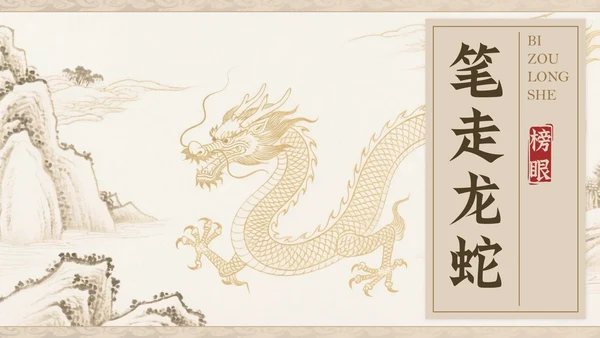 笔走龙蛇
BI
ZOU
LONG
SHE
榜眼